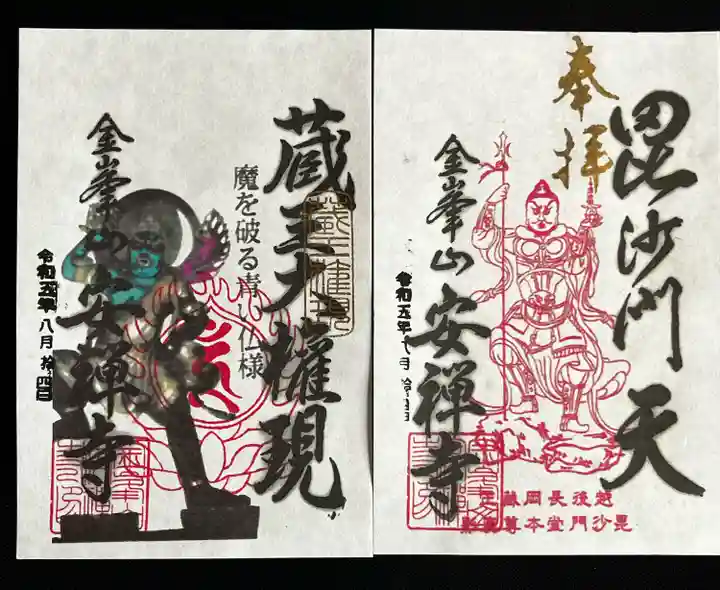 蔵王大権現
魔を破る青い仏様
金峯山安禅寺
令和五年八月拾四日
奉拝
毘沙門天
金峯山安禅寺
令和五年八月拾四日
越後長岡蔵王
毘沙門堂本尊